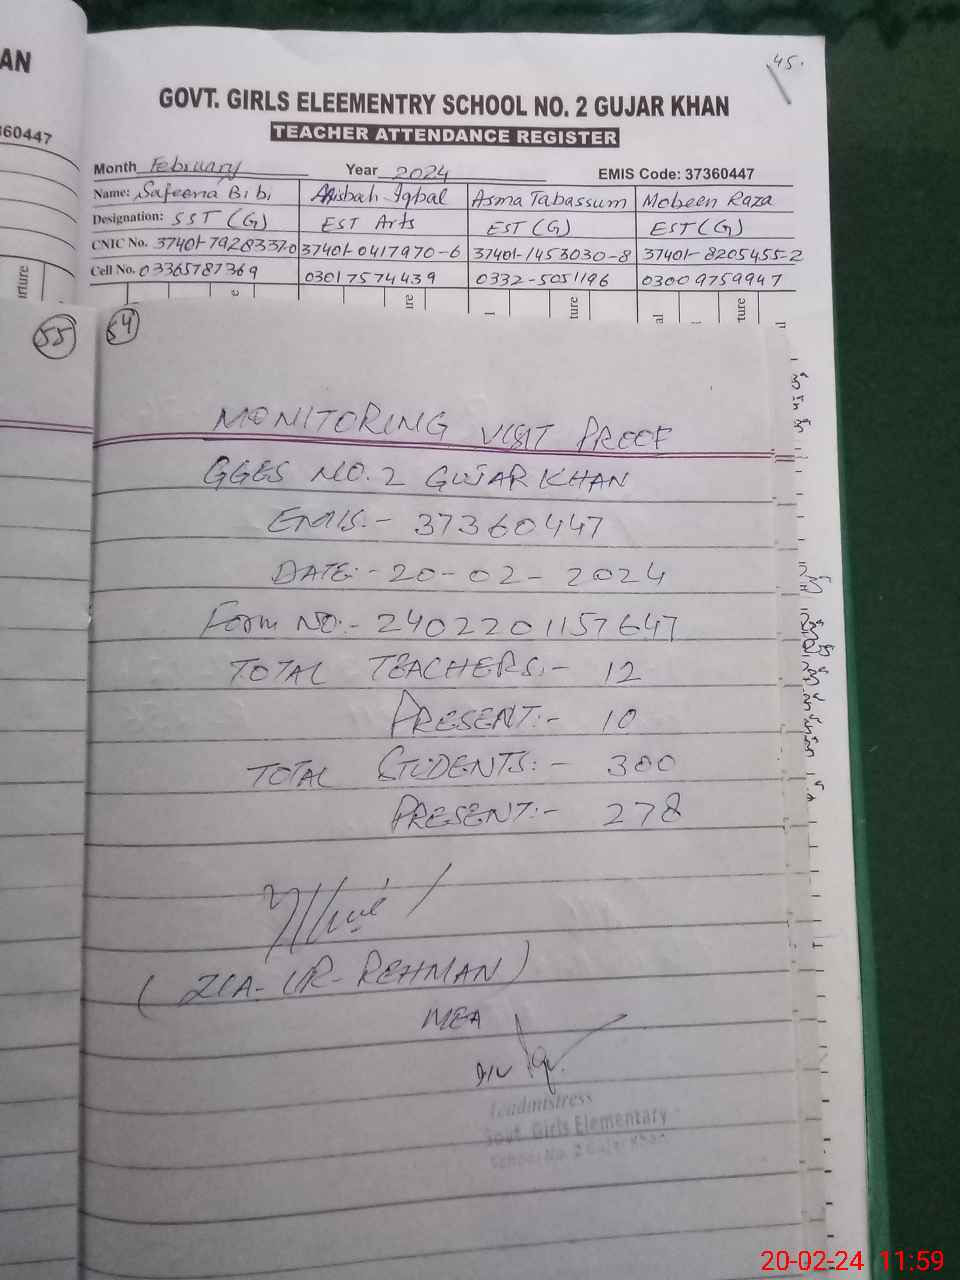 AN
45.
GOVT. GIRLS ELEEMENTRY SCHOOL NO. 2 GUJAR KHAN
TEACHER ATTENDANCE REGISTER
360447
Month February Year 2024 EMIS Code: 37360447
Name: Safeena Bibi Misbah Iqbal Asma Tabassum Mobeen Raza
Designation: SST (G) EST Arts EST (G) EST (G)
CNIC No. 37401-7928337-0 37401-0417970-6 37401-1453030-8 37401-8205455-2
Cell No. 03365787369 03017574439 0332-5051196 03009759947
55
54
MONITORING VISIT PROOF
GGES NO. 2 GUJAR KHAN
EMIS:- 37360447
DATE:- 20-02-2024
Form NO:- 2402201157647
TOTAL TEACHERS:- 12
PRESENT:- 10
TOTAL STUDENTS:- 300
PRESENT:- 278
(ZIA-UR-REHMAN)
MEA
Headmistress
Govt. Girls Elementary
School No. 2 Gujar Khan
20-02-24 11:59